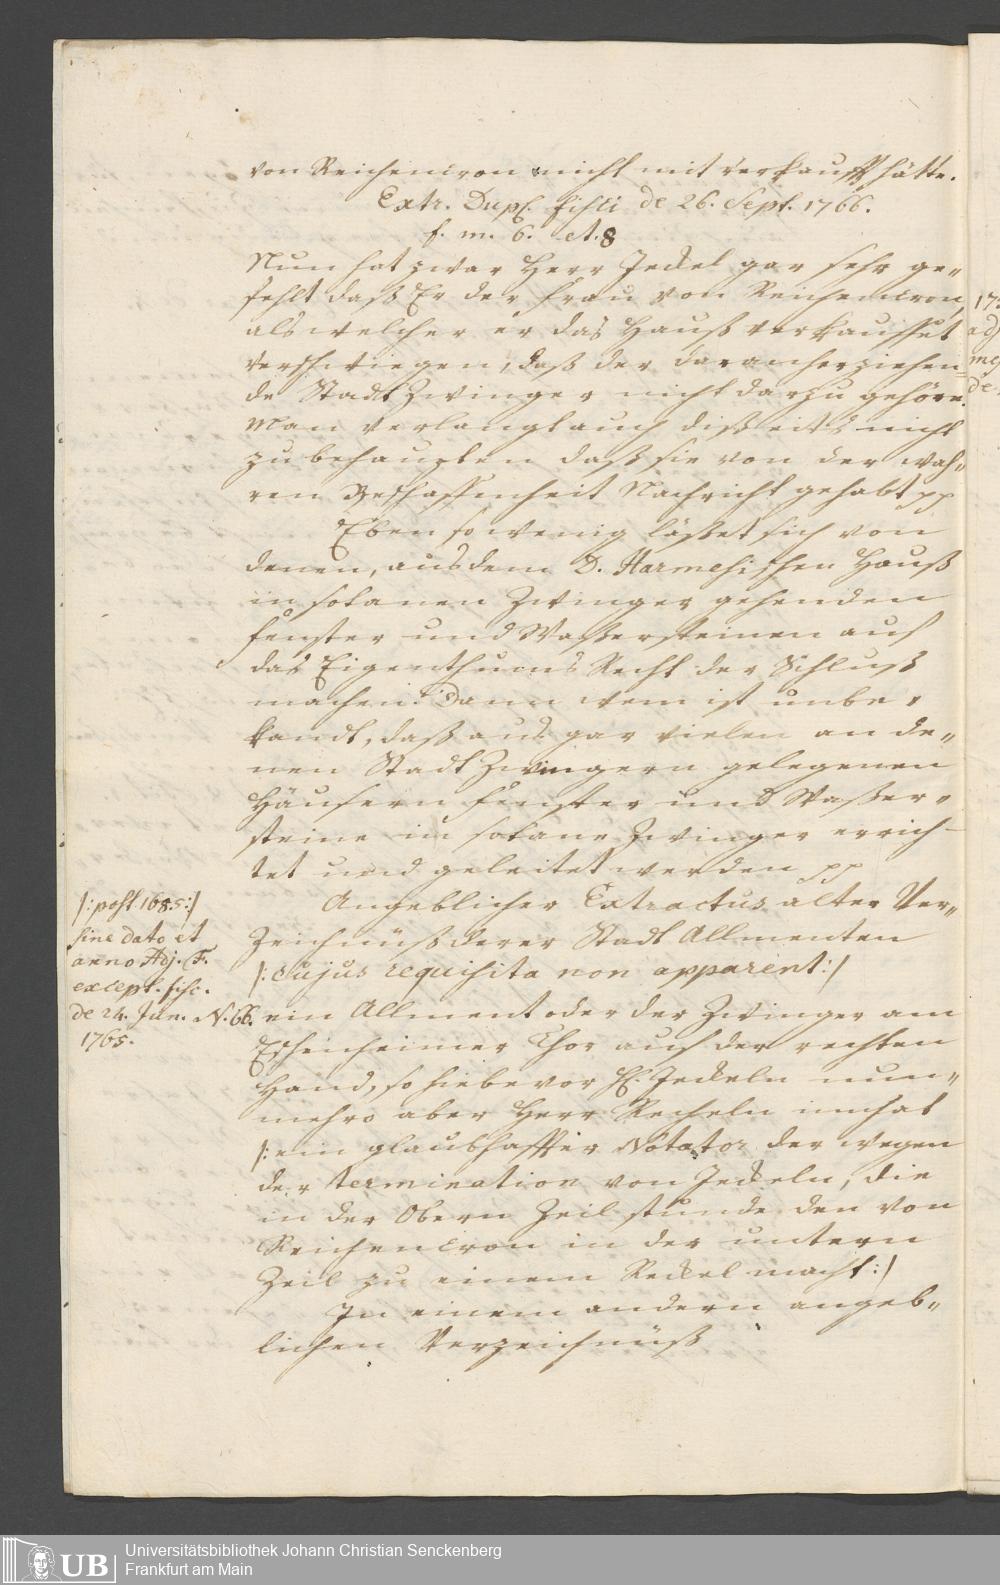 von Reichencron nicht mit verkaufft hätte.
Extr. Dupl. fisci de 26. Sept. 1766.
f. m. 6. et. 8
Nun hat zwar Herr Jeckel gar sehr ge„
fehlt daß Er der Frau von Reichencron,
als welcher er das Hauß verkauffet
verschwiegen, daß der daranherziehen„
de Stadt Zwinger nicht darzu gehöre.
Man verlangt auch disseits nicht
zu behaupten daß sie von der wah„
ren Beschaffenheit Nachricht gehabt pp
Eben so wenig lässet sich von
denen, aus dem D. Harmesischen Hauß
in sotanen Zwinger gehenden
Fenster und Wassersteinen auf
das Eigenthums Recht der Schluß
machen. Dann wem ist unbe„
kandt, daß aus gar vielen an de„
nen Stadt Zwingern gelegenen
Häusern Fenster und Wasser„
steine in sotane Zwinger errich„
tet und geleitet werden pp
Angeblicher Extractus alter Ver„
zeichnüß derer Stadt Allmenten
/: cujus requisita non apparent :/
/: post 1685 :/
sine dato et
anno Adj. F.
except. fisc.
de 24. Jun.
1765.
N. 66. ein Allment oder der Zwinger am
Eschenheimer Thor auf der rechten
Hand, so hiebevor H. Jeckeln nun„
mehro aber Herr Recheln innhat
/: ein glaubhaffter Notator der wegen
der termination von Jeckeln, die
in der Obern Zeil stunde den von
Reichencron in der untern
Zeil zu einem Reckel macht :/
In einem andern angeb„
lichen Verzeichnüß
17.
adj
UB
Universitätsbibliothek Johann Christian Senckenberg
Frankfurt am Main